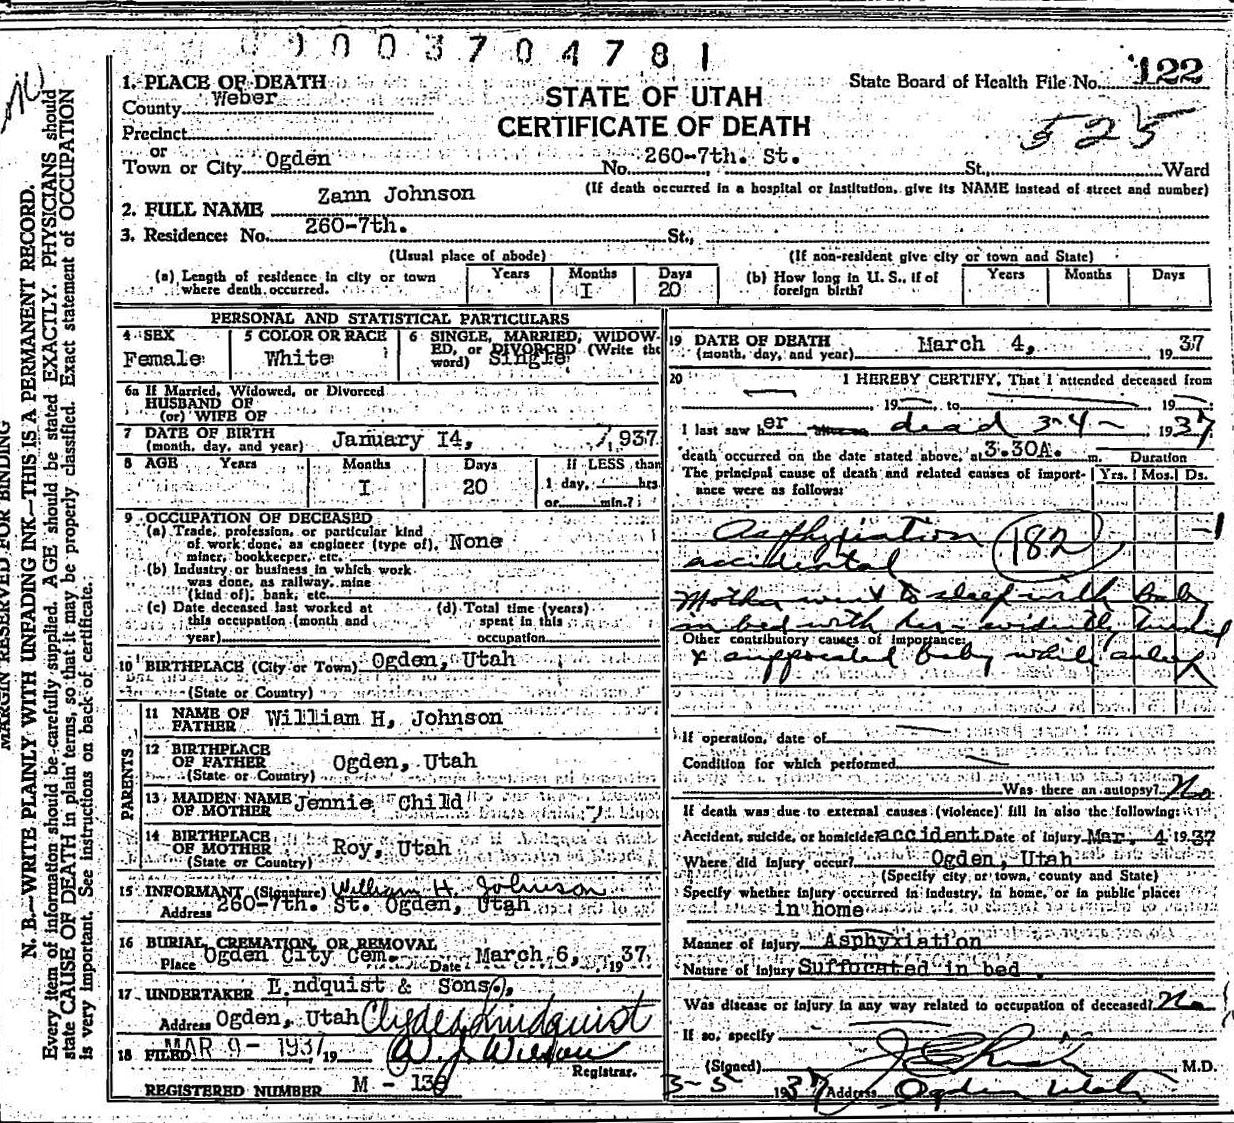 003704781
1. PLACE OF DEATH
State Board of Health File No. 122
County Weber
STATE OF UTAH
CERTIFICATE OF DEATH
525
Precinct
or
Town or City Ogden No. 260-7th. St. St., Ward
(If death occurred in a hospital or institution, give its NAME instead of street and number)
2. FULL NAME Zann Johnson
3. Residence: No. 260-7th. St.,
(Usual place of abode) (If non-resident give city or town and State)
(a) Length of residence in city or town where death occurred. Years Months I Days 20
(b) How long in U. S., if of foreign birth? Years Months Days
PERSONAL AND STATISTICAL PARTICULARS
4 SEX Female
5 COLOR OR RACE White
6 SINGLE, MARRIED, WIDOWED, or DIVORCED (Write the word) Single
6a If Married, Widowed, or Divorced
HUSBAND OF
(or) WIFE OF
7 DATE OF BIRTH (month, day, and year) January I4, 1937
8 AGE Years Months I Days 20 If LESS than 1 day, hrs. or min.?
9 OCCUPATION OF DECEASED
(a) Trade, profession, or particular kind
of work done, as engineer (type of), None
miner, bookkeeper, etc.
(b) Industry or business in which work
was done, as railway, mine
(kind of), bank, etc.
(c) Date deceased last worked at
this occupation (month and
year)
(d) Total time (years)
spent in this
occupation
10 BIRTHPLACE (City or Town) Ogden, Utah
(State or Country)
PARENTS
11 NAME OF FATHER William H, Johnson
12 BIRTHPLACE OF FATHER Ogden, Utah
(State or Country)
13 MAIDEN NAME OF MOTHER Jennie Child
14 BIRTHPLACE OF MOTHER Roy, Utah
(State or Country)
15 INFORMANT (Signature) William H. Johnson
Address 260-7th. St. Ogden, Utah
16 BURIAL, CREMATION OR REMOVAL
Place Ogden City Cem. Date March 6, 1937.
17 UNDERTAKER Lindquist & Sons.,
Address Ogden, Utah Clyde Lindquist
18 FILED MAR 9 - 1937, 19 W. J. Wilson
Registrar.
REGISTERED NUMBER M - 138
19 DATE OF DEATH (month, day, and year) March 4, 1937
20 I HEREBY CERTIFY, That I attended deceased from
19 , to 19
I last saw her dead 3-4- 1937
death occurred on the date stated above, at 3.30A. m. Duration
The principal cause of death and related causes of importance were as follows: Yrs. Mos. Ds.
Asphyxiation 182
accidental
Mother went to sleep with baby
in bed with her - evidently
Other contributory causes of importance:
& suffocated baby while asleep
If operation, date of
Condition for which performed
Was there an autopsy? No
If death was due to external causes (violence) fill in also the following:
Accident, suicide, or homicide accident Date of injury Mar. 4 1937
Where did injury occur? Ogden, Utah
(Specify city or town, county and State)
Specify whether injury occurred in industry, in home, or in public place:
in home
Manner of injury Asphyxiation
Nature of injury Suffocated in bed.
Was disease or injury in any way related to occupation of deceased? No
If so, specify
(Signed) M.D.
3-5 1937 Address Ogden Utah
MARGIN RESERVED FOR BINDING
N. B.—WRITE PLAINLY WITH UNFADING INK—THIS IS A PERMANENT RECORD.
Every item of information should be carefully supplied. AGE should be stated EXACTLY. PHYSICIANS should
state CAUSE OF DEATH in plain terms, so that it may be properly classified. Exact statement of OCCUPATION
is very important. See instructions on back of certificate.